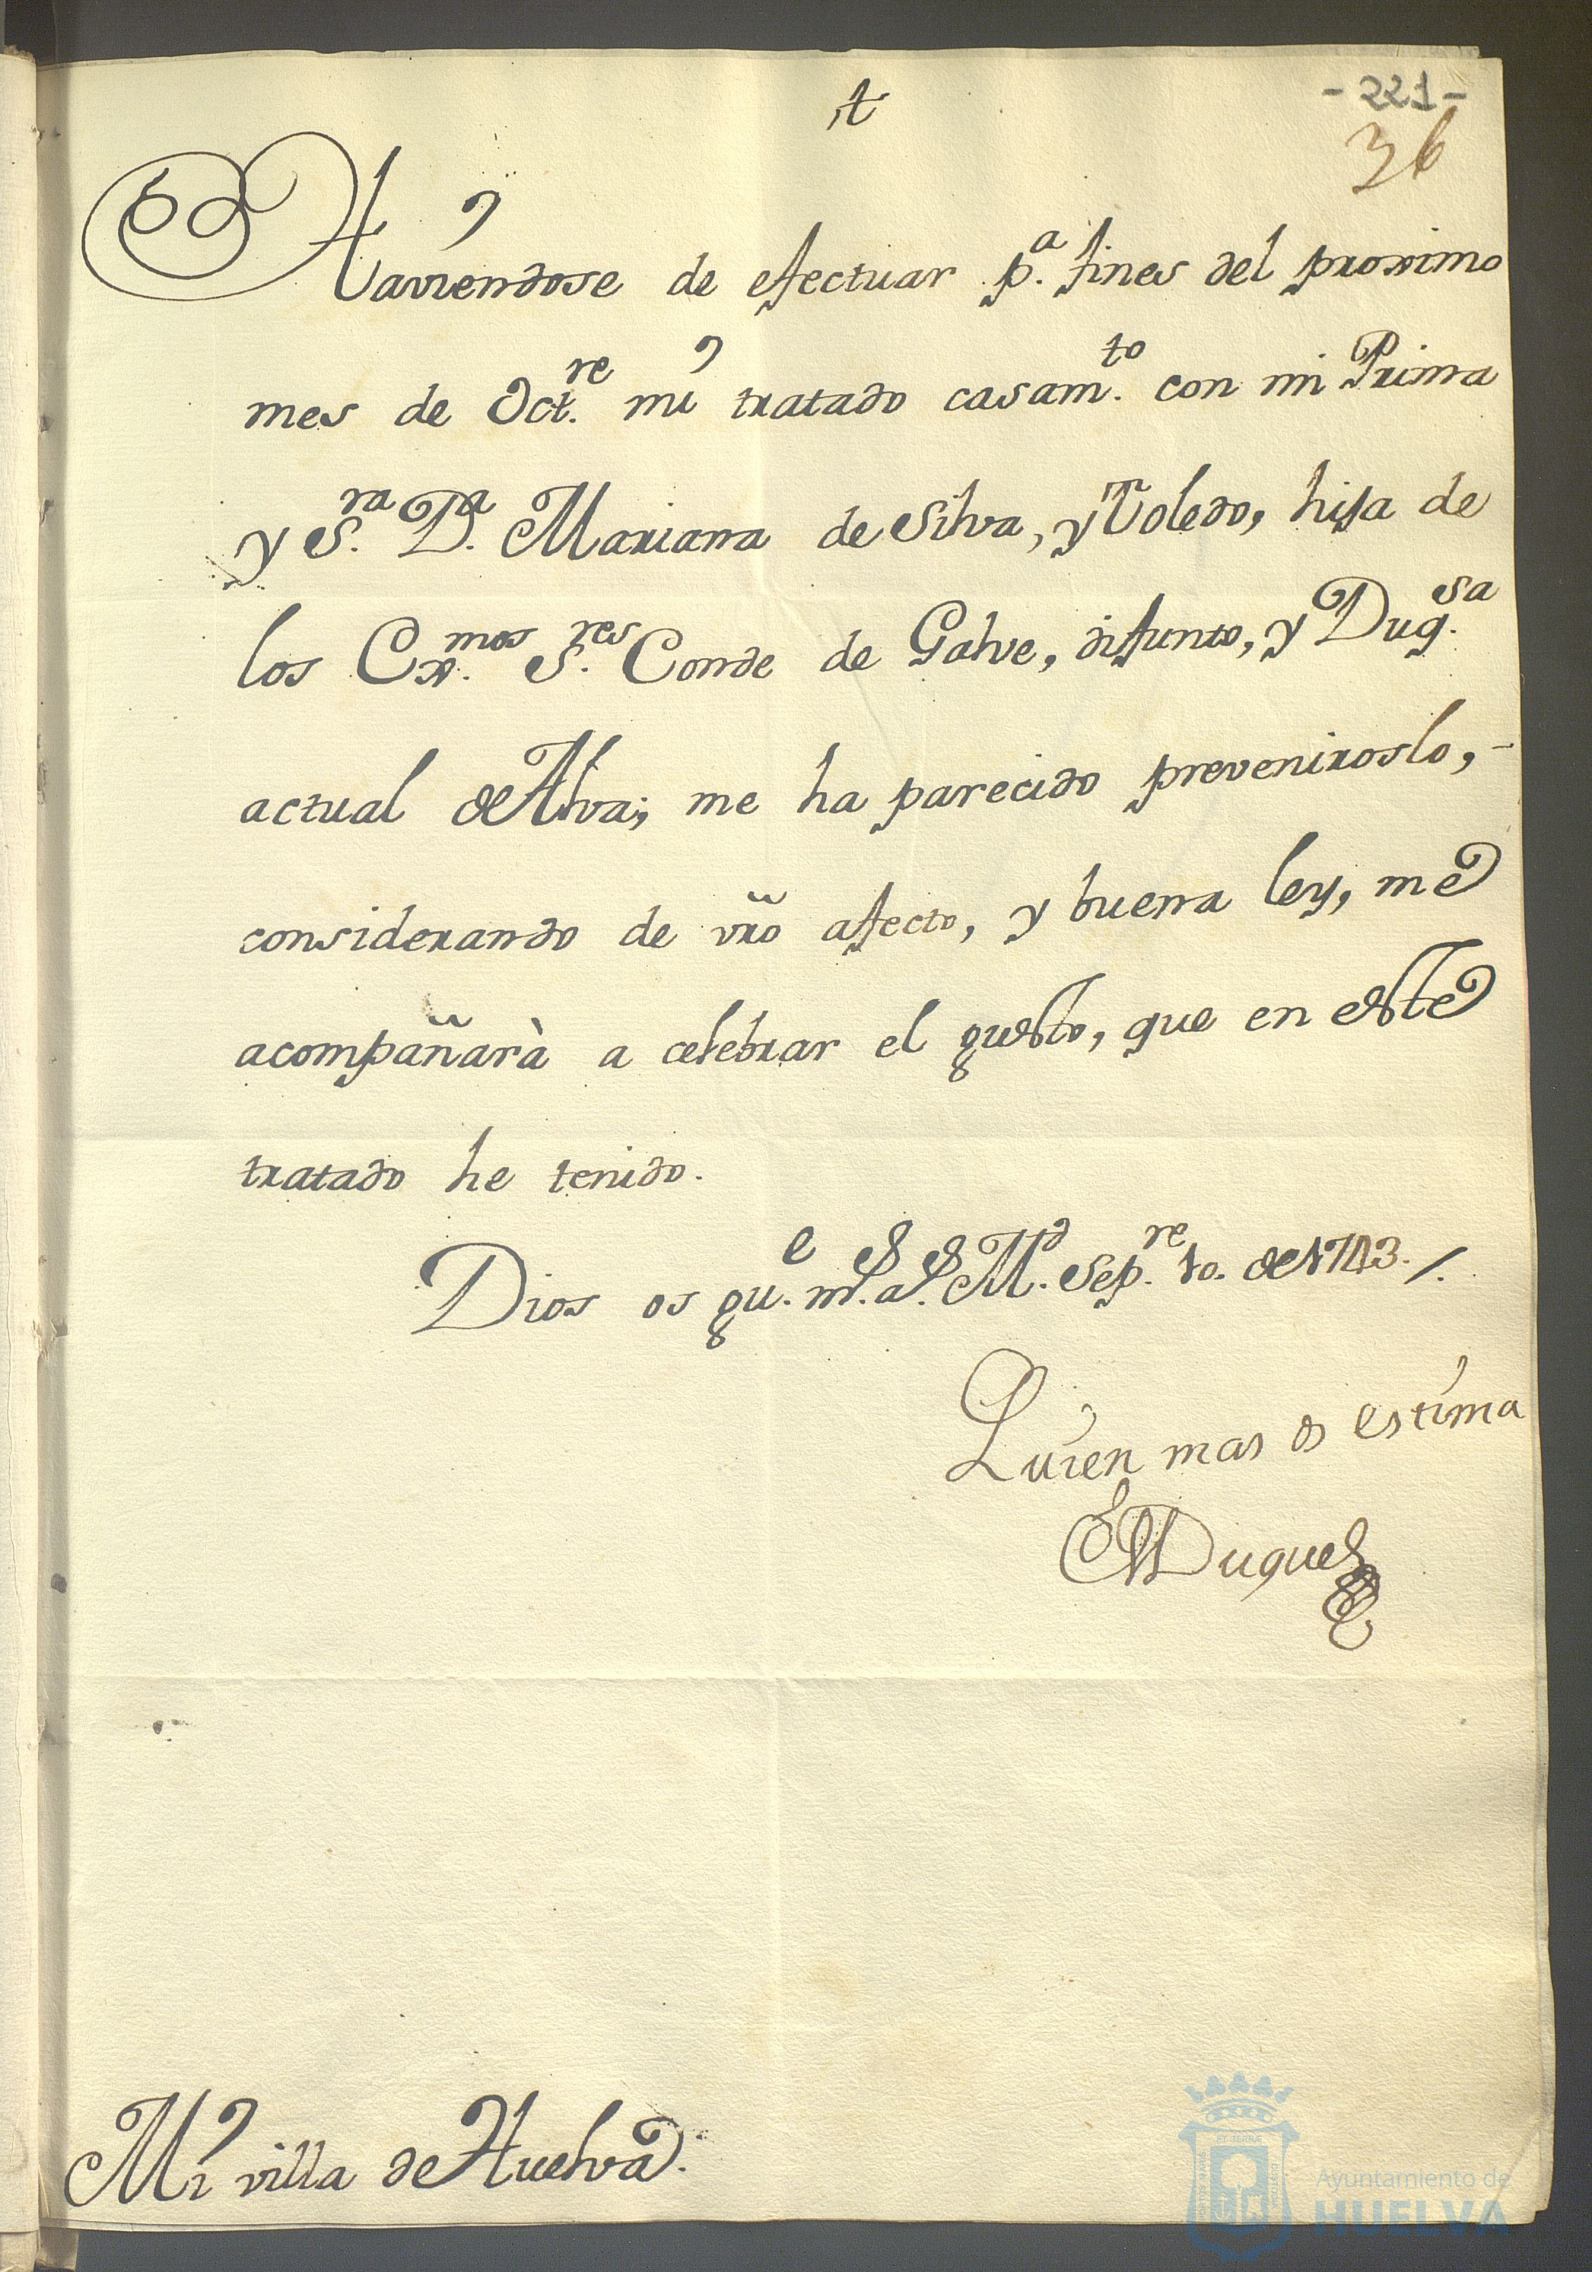 - 221 -
36
Haviendose de efectuar p.ª fines del proximo
mes de Oct.re mi tratado casam.to con mi Prima
y S.ra D.ª Mariana de Silva, y Toledo, hija de
los Ex.mos S.res Conde de Galve, difunto, y Duq.sa
actual de Alva; me ha parecido preveniroslo,-
considerando de vr̃o afecto, y buena ley, me
acompañarà a celebrar el gusto, que en este
tratado he tenido.
Dios os gu.e m.s a.s M.d Sep.re 10. de 1743./.
Quien mas os estima
El Duque
Mi villa de Huelva.
Ayuntamiento de
HUELVA